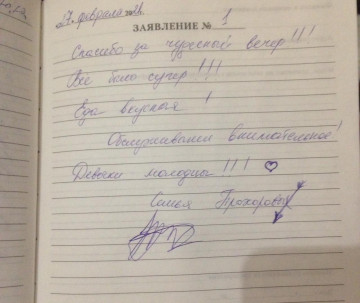 февраля
ЗАЯВЛЕНИЕ № 1
Спасибо за чудесный вечер!!!
Все было супер!!!
Еда вкусная!
Обслуживание внимательное!
Девочки молодцы!!! ♡
Семья Прохоровых